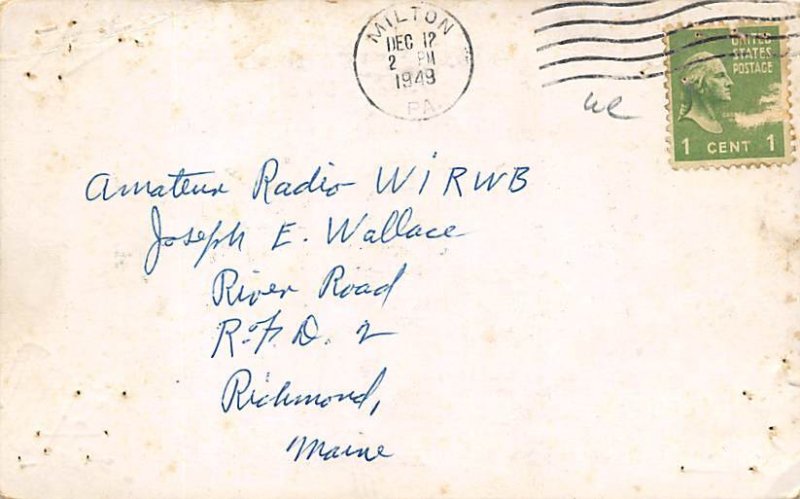 MILTON
DEC 12
2 PM
1949
PA.
UNITED
STATES
POSTAGE
1 CENT 1
Amateur Radio W1RWB
Joseph E. Wallace
River Road
R.F.D. 2
Richmond,
Maine